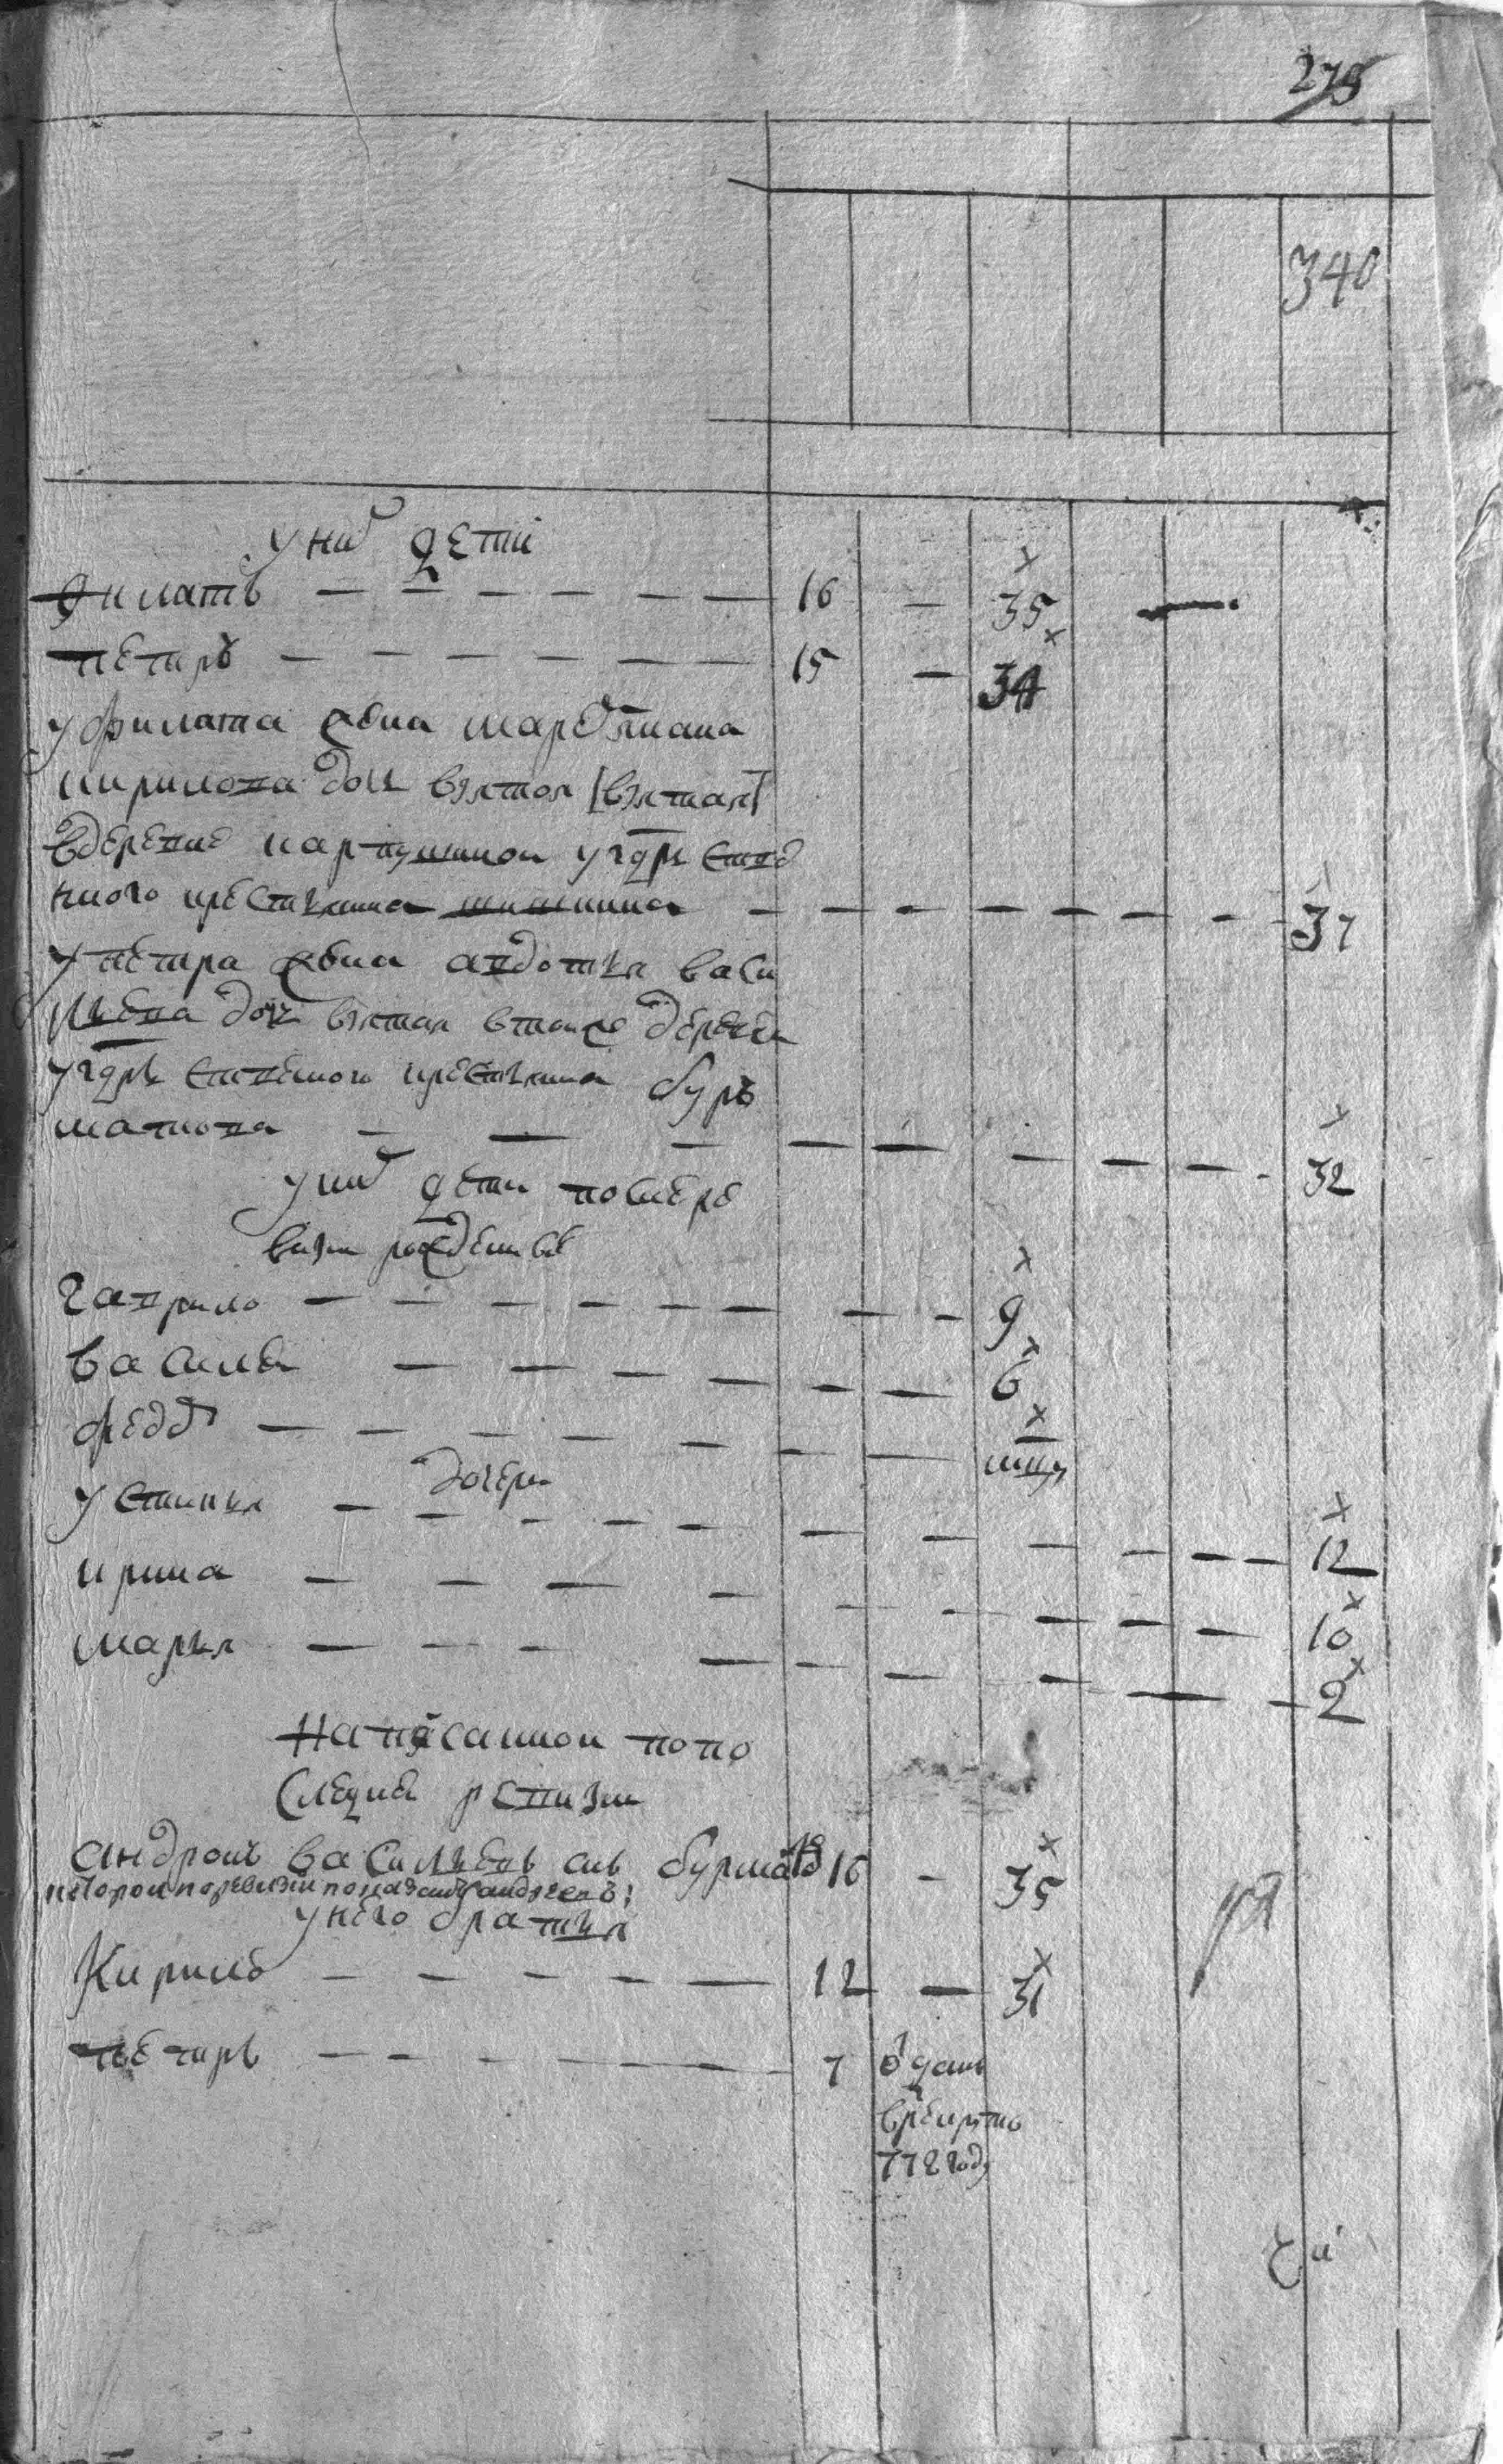 275
340
у них дети
Филатъ — — — — — — 16 — 35
петръ — — — — — — 15 — 34
у филата жена марѳа
кирилова дочь взятая [взятая]
в деревне карпушиной у гдрственного
крестьянина — — — — — — — 37
у петра жена авдотья васи
льева дочь взятая в тоиже деревни
у гдрь ственного крестьянина бур
матова — — — — — — — — — 32
у них дети по сие ре
визи рожденные
гаврило — — — — — — — — 9
василеи — — — — — — 6
федоръ — — — — — — —
дочери
устинья — — — — — — — — — — — 12
ирина — — — — — — — — — 10
марья — — — — — — — — — — 2
написаннои по по
следней ревизи
андронъ васильевъ сынъ бурматовъ 16 — 35
которои по ревизии показанъ андреевъ
у него братья
Кирило — — — — — 12 — 31
петръ — — — — — — 7 отданъ
в рекруты
772 году